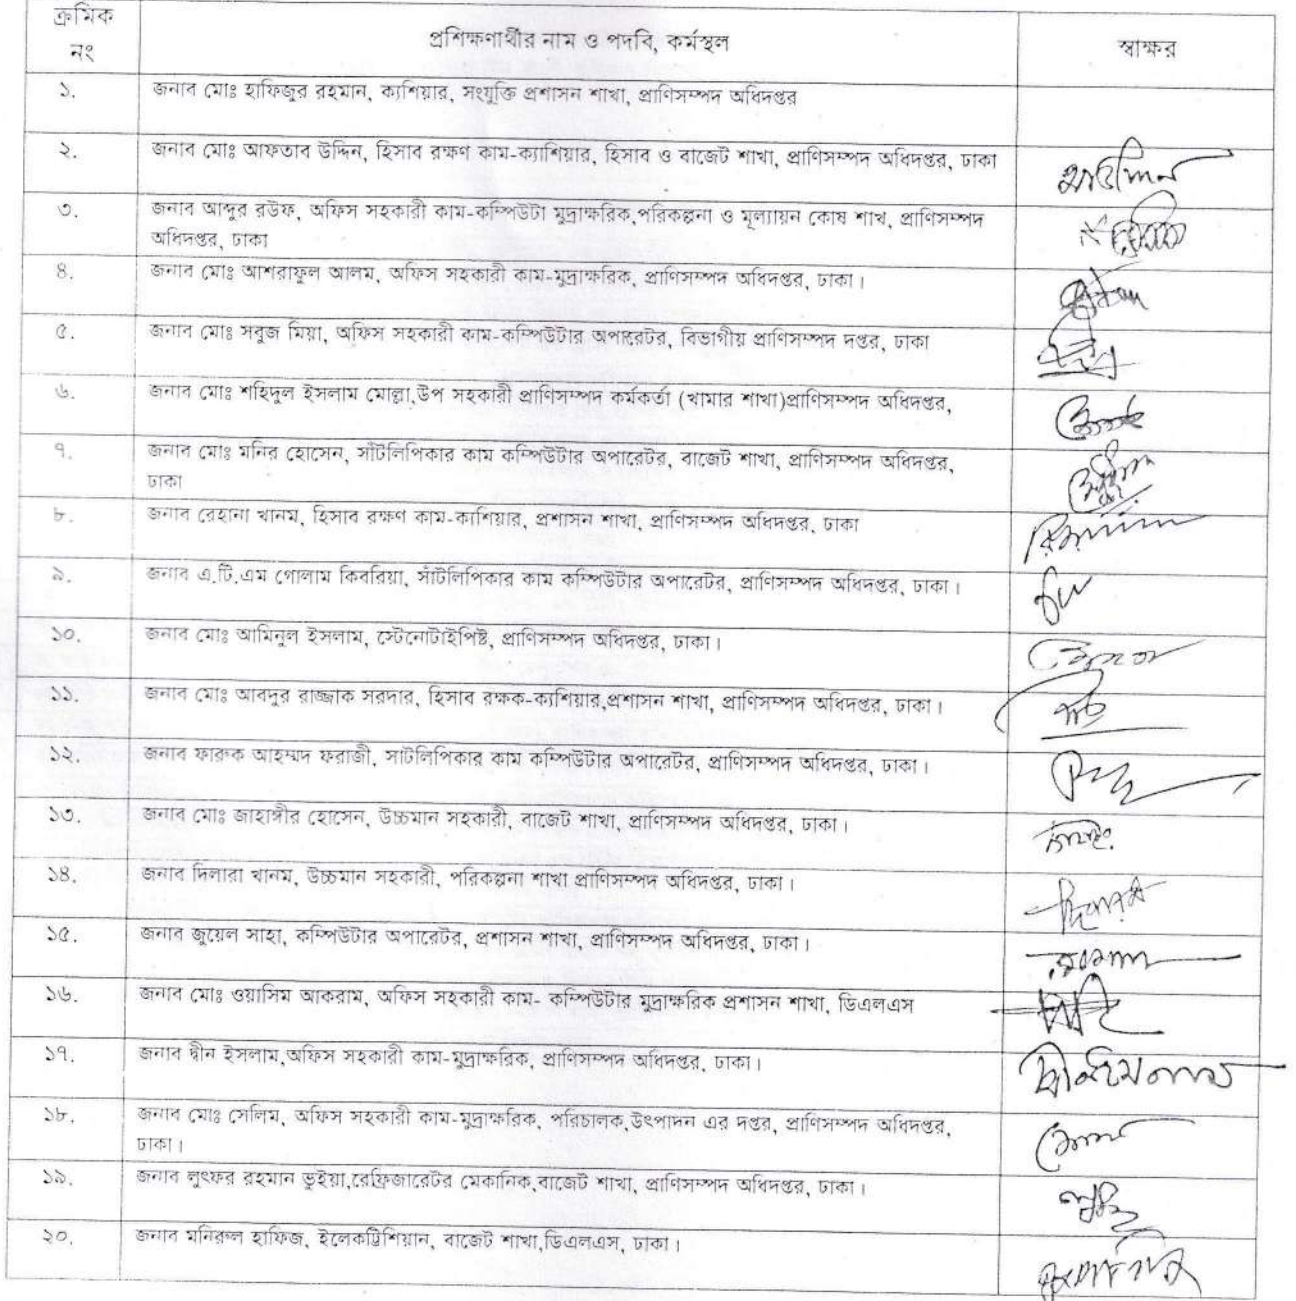 ক্রমিক
নং
প্রশিক্ষণার্থীর নাম ও পদবি, কর্মস্থল
স্বাক্ষর
১. জনাব মোঃ হাফিজুর রহমান, ক্যশিয়ার, সংযুক্তি প্রশাসন শাখা, প্রাণিসম্পদ অধিদপ্তর
২. জনাব মোঃ আফতাব উদ্দিন, হিসাব রক্ষণ কাম-ক্যাশিয়ার, হিসাব ও বাজেট শাখা, প্রাণিসম্পদ অধিদপ্তর, ঢাকা
৩. জনাব আব্দুর রউফ, অফিস সহকারী কাম-কম্পিউটা মুদ্রাক্ষরিক,পরিকল্পনা ও মূল্যায়ন কোষ শাখ, প্রাণিসম্পদ
অধিদপ্তর, ঢাকা
৪. জনাব মোঃ আশরাফুল আলম, অফিস সহকারী কাম-মুদ্রাক্ষরিক, প্রাণিসম্পদ অধিদপ্তর, ঢাকা।
৫. জনাব মোঃ সবুজ মিয়া, অফিস সহকারী কাম-কম্পিউটার অপারেটর, বিভাগীয় প্রাণিসম্পদ দপ্তর, ঢাকা
৬. জনাব মোঃ শহিদুল ইসলাম মোল্লা,উপ সহকারী প্রাণিসম্পদ কর্মকর্তা (খামার শাখা)প্রাণিসম্পদ অধিদপ্তর,
৭. জনাব মোঃ মনির হোসেন, সাঁটলিপিকার কাম কম্পিউটার অপারেটর, বাজেট শাখা, প্রাণিসম্পদ অধিদপ্তর,
ঢাকা
৮. জনাব রেহানা খানম, হিসাব রক্ষণ কাম-ক্যশিয়ার, প্রশাসন শাখা, প্রাণিসম্পদ অধিদপ্তর, ঢাকা
৯. জনাব এ.টি.এম গোলাম কিবরিয়া, সাঁটলিপিকার কাম কম্পিউটার অপারেটর, প্রাণিসম্পদ অধিদপ্তর, ঢাকা।
১০. জনাব মোঃ আমিনুল ইসলাম, স্টেনোটাইপিষ্ট, প্রাণিসম্পদ অধিদপ্তর, ঢাকা।
১১. জনাব মোঃ আবদুর রাজ্জাক সরদার, হিসাব রক্ষক-ক্যশিয়ার,প্রশাসন শাখা, প্রাণিসম্পদ অধিদপ্তর, ঢাকা।
১২. জনাব ফারুক আহম্মদ ফরাজী, সাটলিপিকার কাম কম্পিউটার অপারেটর, প্রাণিসম্পদ অধিদপ্তর, ঢাকা।
১৩. জনাব মোঃ জাহাঙ্গীর হোসেন, উচ্চমান সহকারী, বাজেট শাখা, প্রাণিসম্পদ অধিদপ্তর, ঢাকা।
১৪. জনাব দিলারা খানম, উচ্চমান সহকারী, পরিকল্পনা শাখা প্রাণিসম্পদ অধিদপ্তর, ঢাকা।
দিলারা
১৫. জনাব জুয়েল সাহা, কম্পিউটার অপারেটর, প্রশাসন শাখা, প্রাণিসম্পদ অধিদপ্তর, ঢাকা।
১৬. জনাব মোঃ ওয়াসিম আকরাম, অফিস সহকারী কাম- কম্পিউটার মুদ্রাক্ষরিক প্রশাসন শাখা, ডিএলএস
১৭. জনাব দ্বীন ইসলাম,অফিস সহকারী কাম-মুদ্রাক্ষরিক, প্রাণিসম্পদ অধিদপ্তর, ঢাকা।
দ্বীন ইসলাম
১৮. জনাব মোঃ সেলিম, অফিস সহকারী কাম-মুদ্রাক্ষরিক, পরিচালক,উৎপাদন এর দপ্তর, প্রাণিসম্পদ অধিদপ্তর,
ঢাকা।
১৯. জনাব লুৎফর রহমান ভুইয়া,রেফ্রিজারেটর মেকানিক,বাজেট শাখা, প্রাণিসম্পদ অধিদপ্তর, ঢাকা।
২০. জনাব মনিরুল হাফিজ, ইলেকট্রিশিয়ান, বাজেট শাখা,ডিএলএস, ঢাকা।